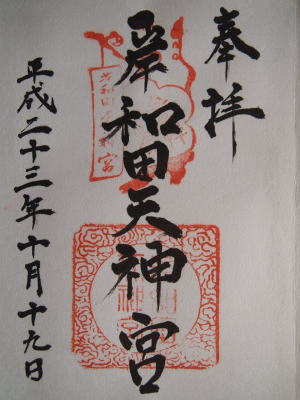 奉拝
岸和田天神宮
平成二十三年十月十九日